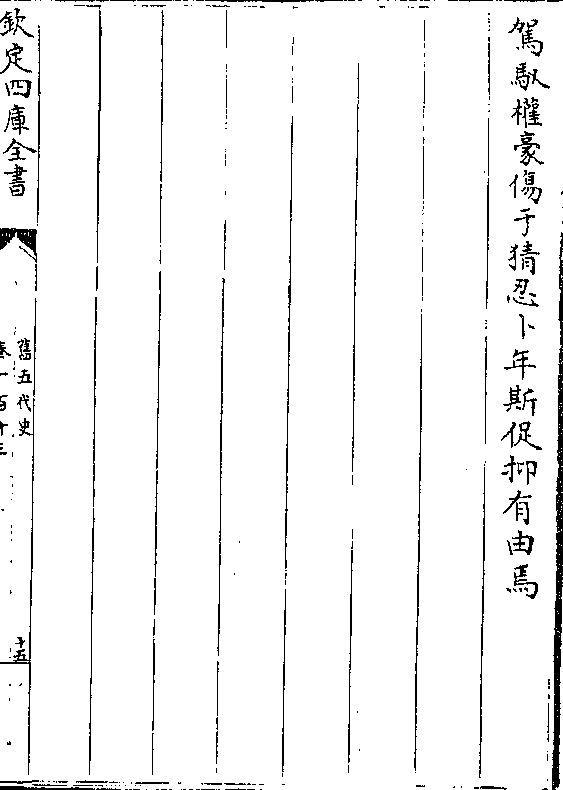 駕馭權豪傷于猜忍卜年斯促抑有由焉
欽定四庫全書
舊五代史
卷一百十三
十五